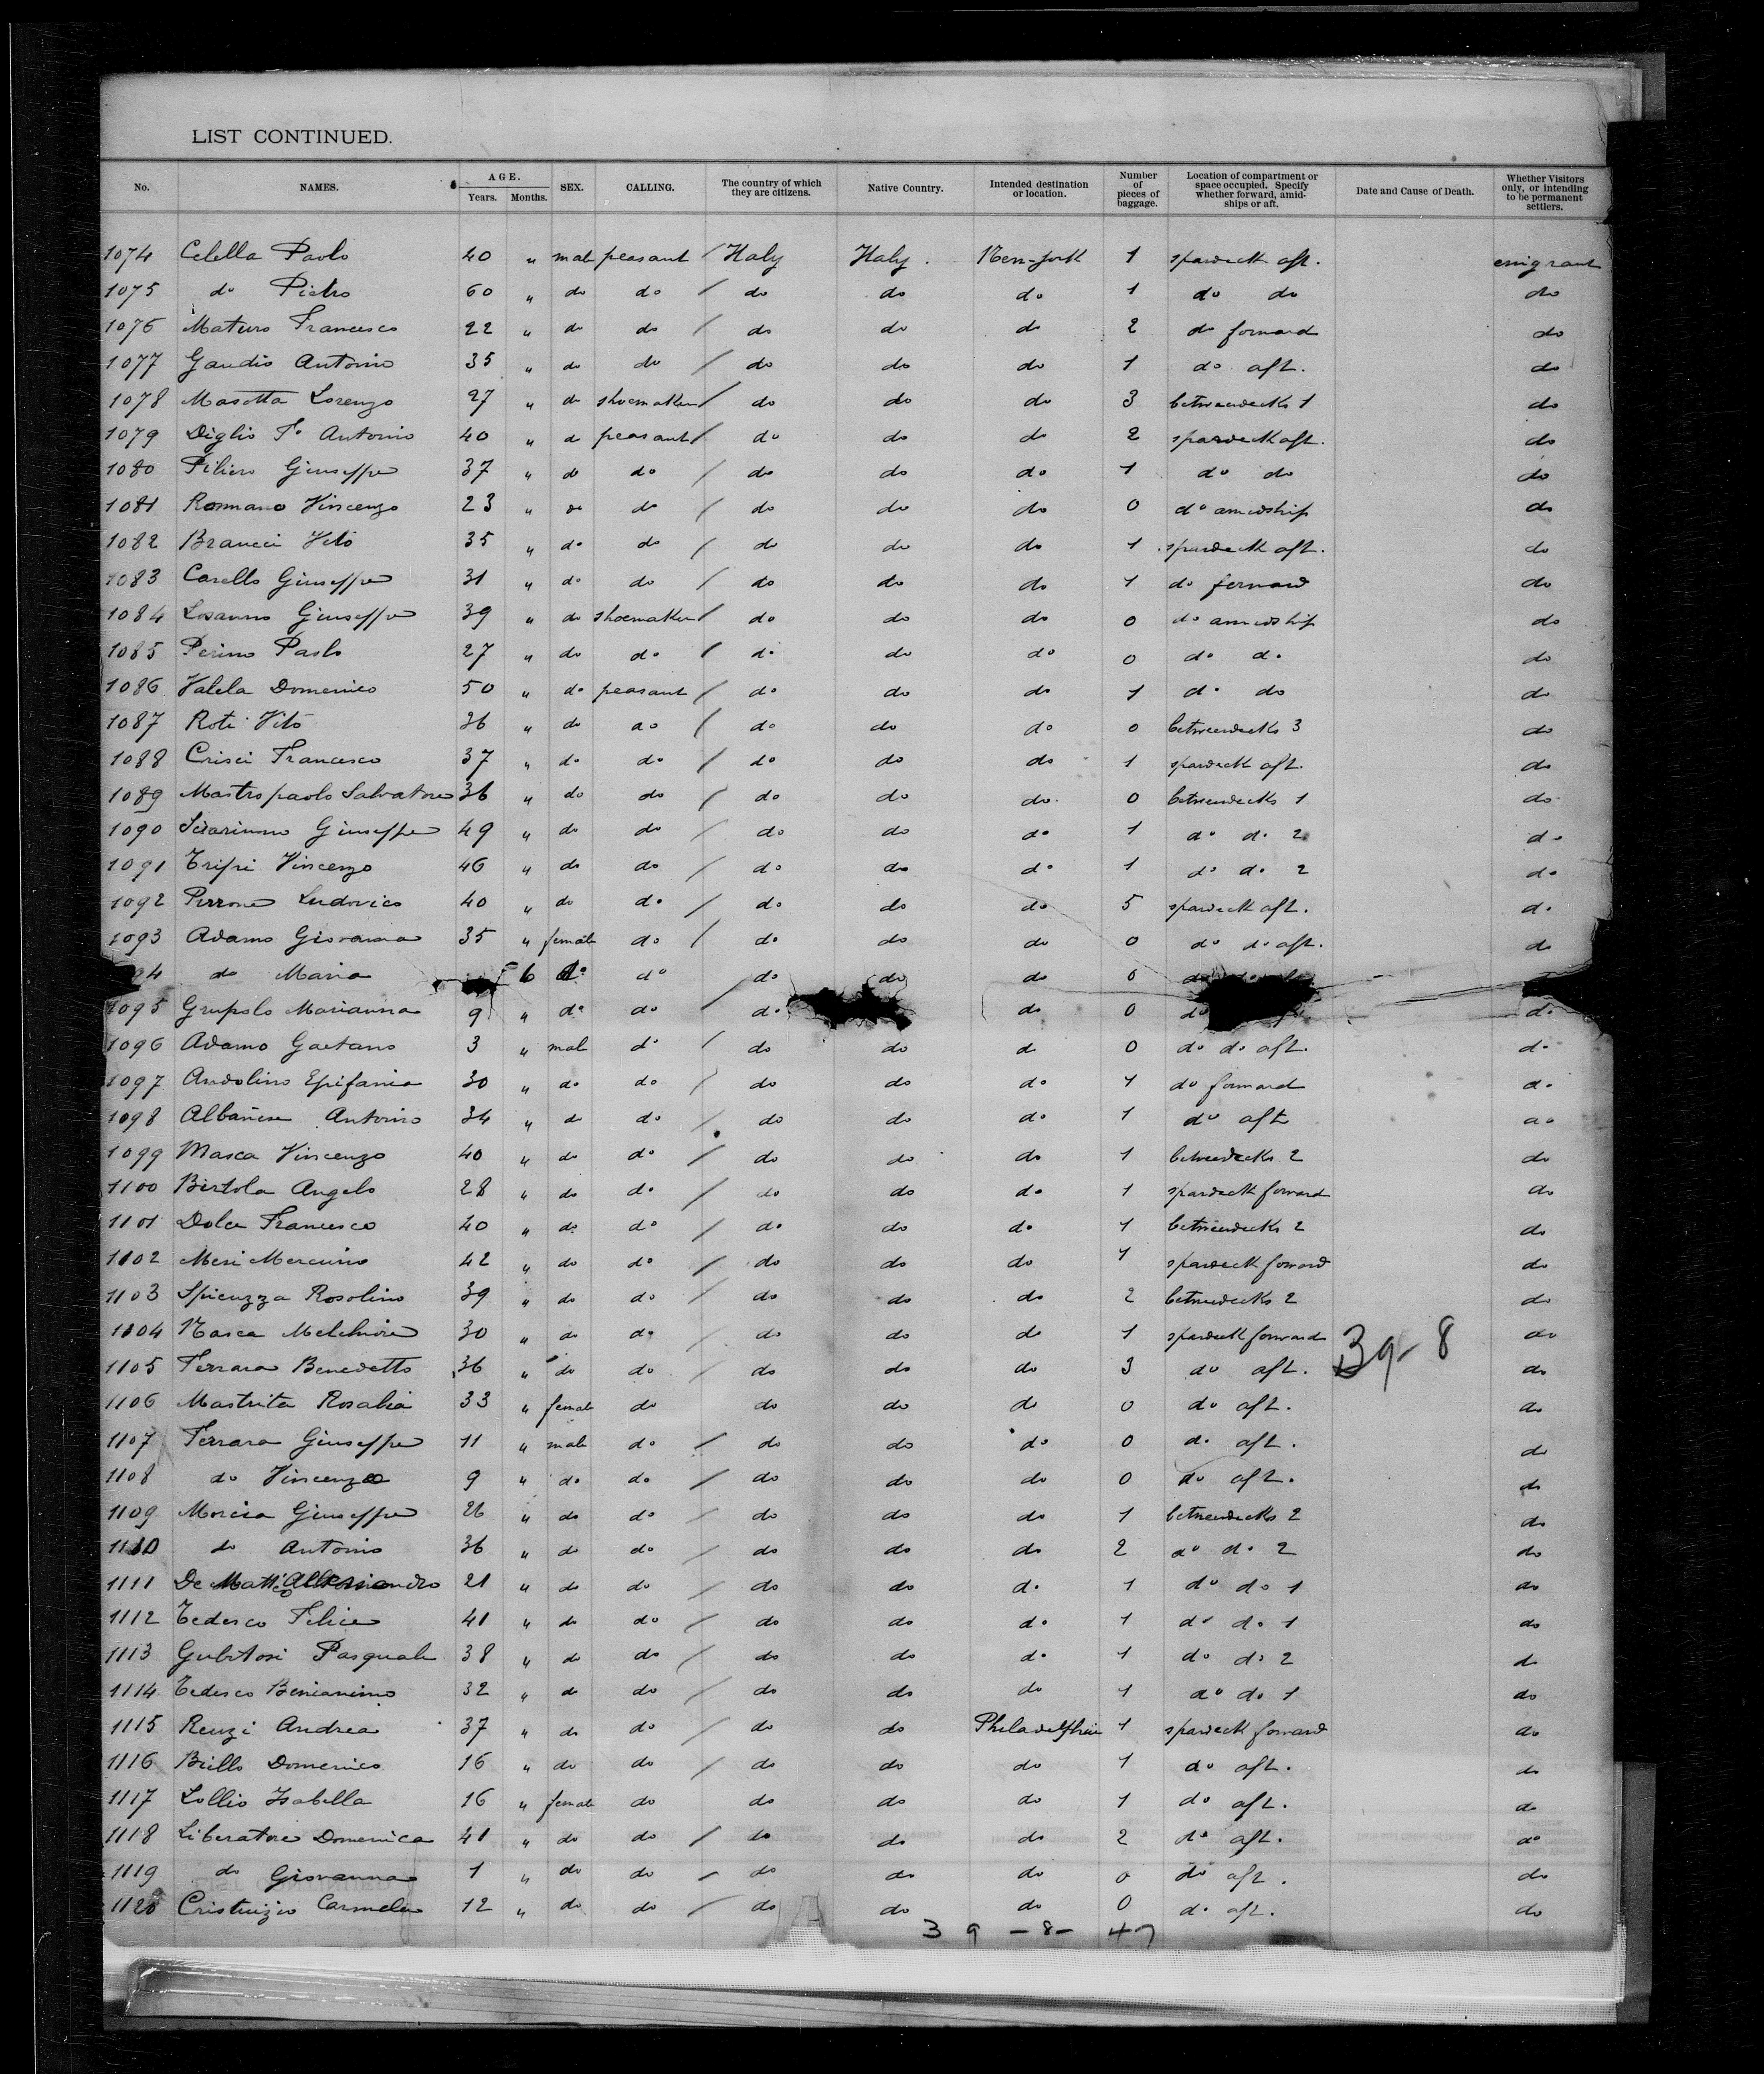 LIST CONTINUED.
No. NAMES. AGE. Years. Months. SEX. CALLING. The country of which they are citizens. Native Country. Intended destination or location. Number of pieces of baggage. Location of compartment or space occupied. Specify whether forward, amidships or aft. Date and Cause of Death. Whether Visitors only, or intending to be permanent settlers.
1074 Celella Paolo 40 " male peasant / Italy Italy. New-york 1 spardeck aft. emigrant
1075 do Pietro 60 " do do / do do do 1 do do do
1076 Maturo Francesco 22 " do do / do do do 2 do forward do
1077 Gaudio Antonio 35 " do do / do do do 1 do aft. do
1078 Masotta Lorenzo 27 " do shoemaker / do do do 3 betweendecks 1 do
1079 Diglio Fo Antonio 40 " do peasant / do do do 2 spardeck aft. do
1080 Giuseppe 37 " do do / do do do 1 do do do
1081 Rommano Vincenzo 23 " do do / do do do 0 do amidship do
1082 Brancci Vito 35 " do do / do do do 1 spardeck aft. do
1083 Carello Giuseppe 31 " do do / do do do 1 do forward do
1084 Losanno Giuseppe 39 " do shoemaker / do do do 0 do amidship do
1085 Perino Paolo 27 " do do / do do do 0 do do do
1086 Valela Domenico 50 " do peasant / do do do 1 do do do
1087 Roti Vito 36 " do do / do do do 0 betweendecks 3 do
1088 Crisci Francesco 37 " do do / do do do 1 spardeck aft. do
1089 Mastropaolo Salvatore 36 " do do / do do do 0 betweendecks 1 do
1090 Giuseppe 49 " do do / do do do 1 do do 2 do
1091 Tripi Vincenzo 46 " do do / do do do 1 do do 2 do
1092 Perrone Ludovico 40 " do do / do do do 5 spardeck aft. do
1093 Adamo Giovanna 35 " female do / do do do 0 do do aft. do
94 do Maria 6 do do do do do 0 do
1095 Grupolo Marianna 9 " do do / do do 0 do do
1096 Adamo Gaetano 3 " male do / do do do 0 do do aft. do
1097 Andolino Epifanio 30 " do do / do do do 1 do forward do
1098 Albanese Antonio 34 " do do / do do do 1 do aft do
1099 Masca Vincenzo 40 " do do / do do do 1 betweendecks 2 do
1100 Bertola Angelo 28 " do do / do do do 1 spardeck forward do
1101 Dolce Francesco 40 " do do / do do do 1 betweendecks 2 do
1102 Mesi Mercurio 42 " do do / do do do 1 spardeck forward do
1103 Spicuzza Rosolino 39 " do do / do do do 2 betweendecks 2 do
1104 Nasca Melchiore 30 " do do / do do do 1 spardeck forward 39-8 do
1105 Ferrara Benedetto 36 " do do / do do do 3 do aft. do
1106 Mastrita Rosalia 33 " female do do do do 0 do aft. do
1107 Ferrara Giuseppe 11 " male do / do do do 0 do aft. do
1108 do Vincenzo 9 " do do / do do do 0 do aft. do
1109 Morcia Giuseppe 26 " do do / do do do 1 betweendecks 2 do
1110 do Antonio 36 " do do / do do do 2 do do 2 do
1111 De Matteo Alessandro 21 " do do / do do do 1 do do 1 do
1112 Tedesco Felice 41 " do do / do do do 1 do do 1 do
1113 Gubitosi Pasquale 38 " do do / do do do 1 do do 2 do
1114 Tedesco Beniamino 32 " do do / do do do 1 do do 1 do
1115 Renzi Andrea 37 " do do / do do Philadelphia 1 spardeck forward do
1116 Brillo Domenico 16 " do do / do do do 1 do aft. do
1117 Lollio Isabella 16 " female do do do do 1 do aft. do
1118 Liberatore Domenica 41 " do do / do do do 2 do aft. do
1119 do Giovanna 1 " do do / do do do 0 do aft. do
1120 Carmela 12 " do do / do do do 0 do aft. do
39-8-47